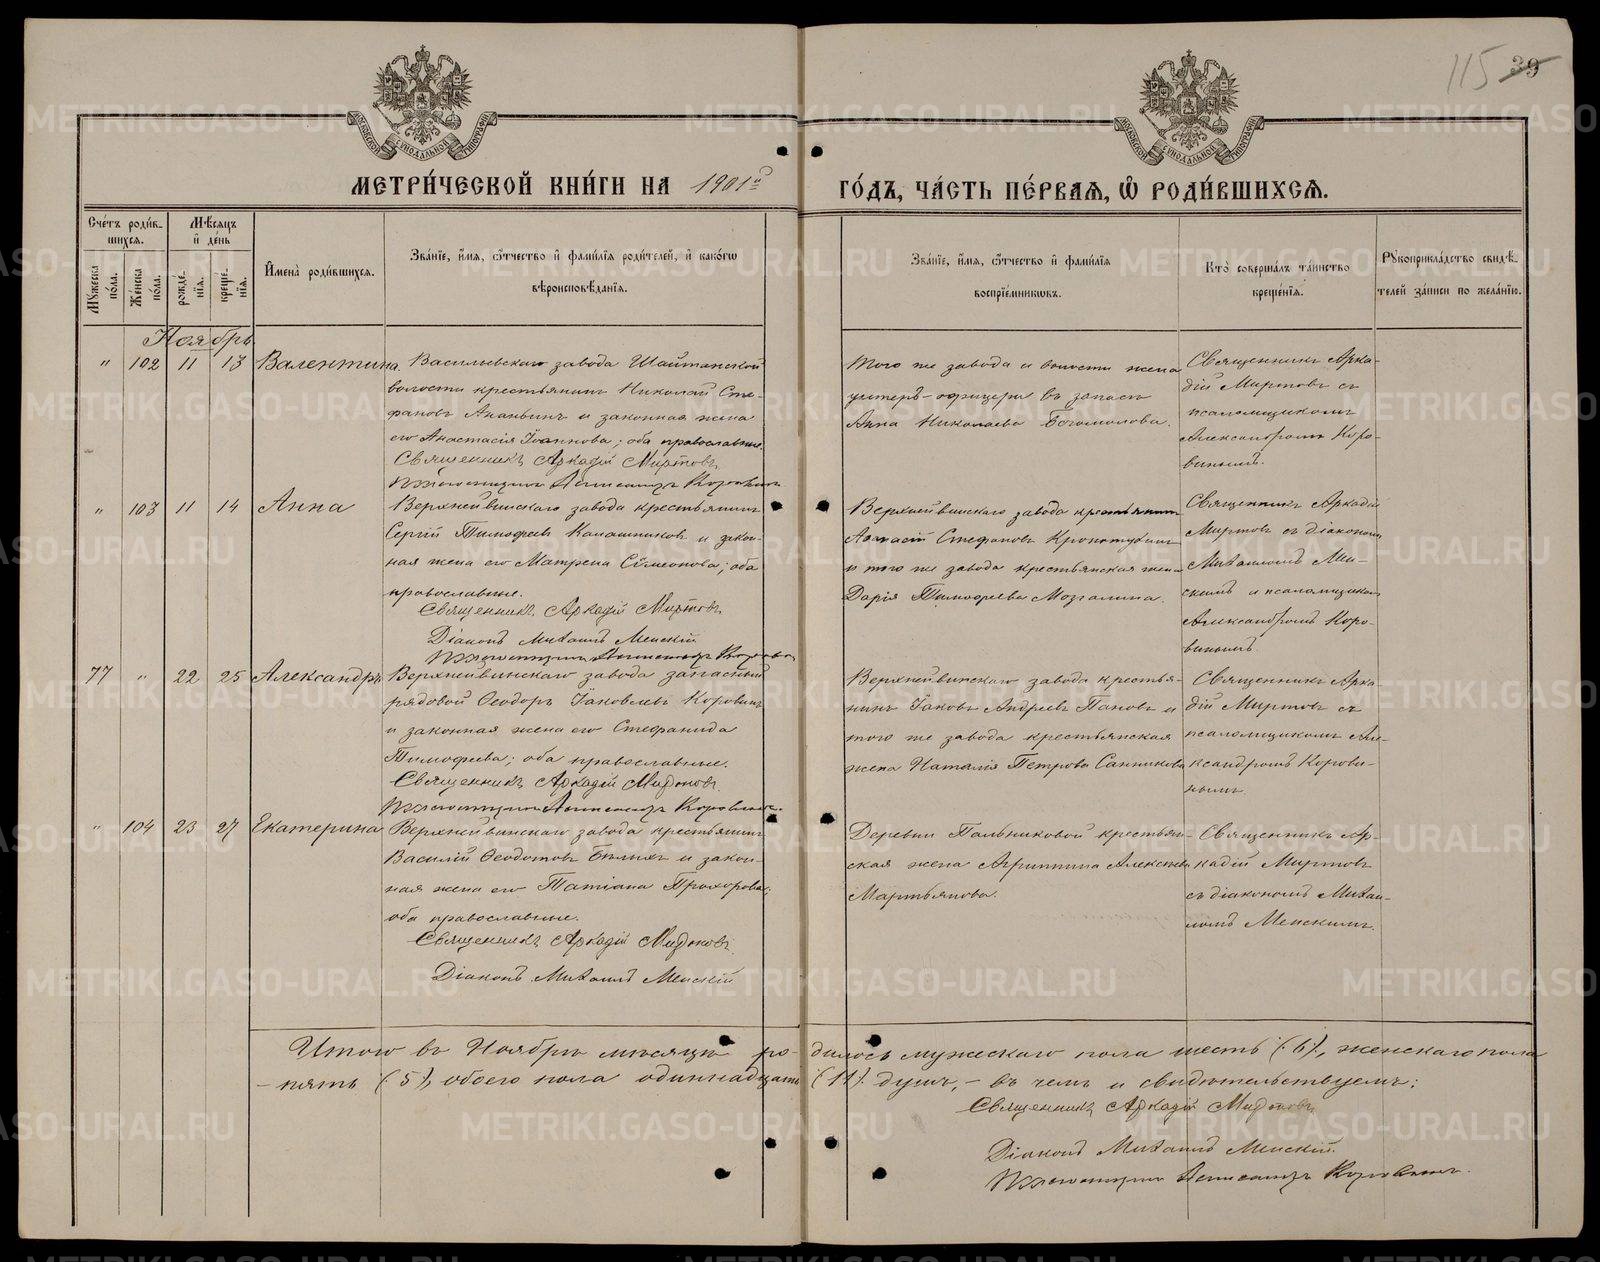 115 39
МОСКОВСКОЙ СѴНОДАЛЬНОЙ ТИПОГРАФІИ
МОСКОВСКОЙ СѴНОДАЛЬНОЙ ТИПОГРАФІИ
МЕТРИ́ЧЕСКОЙ КНИ́ГИ НА 1901й ГО́ДЪ, ЧА́СТЬ ПЕ́РВАѦ, Ѡ҆ РОДИ́ВШИХСѦ.
Сче́тъ роди́в-
шихсѧ.
Мꙋ́жеска по́ла.
Же́нска по́ла.
Мѣ́сѧцъ
и҆ де́нь
рожде́-
нїѧ.
креще́-
нїѧ.
И҆мена̀ роди́вшихсѧ.
Зва́нїе, и҆́мѧ, ѻ҆́тчество и҆ фами́лїѧ роди́телей, и҆ како́гѡ
вѣроисповѣ́данїѧ.
Зва́нїе, и҆́мѧ, ѻ҆́тчество и҆ фами́лїѧ
воспрїе́мникѡвъ.
Кто̀ соверша́лъ та́инство
креще́нїѧ.
Рꙋкоприкла́дство свидѣ́-
телей за́писи по жела́нїю.
Ноябрь
" 102 11 13 Валентина.
Васильевскаго завода Шайтанской
волости крестьянинъ Николай Сте-
фановъ Ананьинъ и законная жена
его Анастасія Іоаннова; оба православные.
Священникъ Аркадій Миртовъ
Псаломщикъ Александръ Коровинъ
Того же завода и волости жена
унтеръ-офицера въ запасѣ
Анна Николаева Богомолова.
Священникъ Арка-
дій Миртовъ съ
псаломщикомъ
Александромъ Коро-
винымъ.
" 103 11 14 Анна
Верхнейвинскаго завода крестьянинъ
Сергій Тимофеевъ Калашниковъ и закон-
ная жена его Матрена Сѵмеонова; оба
православные.
Священникъ Аркадій Миртовъ
Діаконъ Михаилъ Менскій
Псаломщикъ Александръ Коровинъ
Верхнейвинскаго завода крестьянинъ
Аѳанасій Стефановъ
и того же завода крестьянская жена
Дарія Тимофеева Мозгалина.
Священникъ Аркадій
Миртовъ съ діакономъ
Михаиломъ Мен-
скимъ и псаломщикомъ
Александромъ Коро-
винымъ.
77 " 22 25 Александръ
Верхнейвинскаго завода запасный
рядовой Ѳеодоръ Іаковлевъ Коровинъ
и законная жена его Стефанида
Тимофеева; оба православные.
Священникъ Аркадій Миртовъ.
Псаломщикъ Александръ Коровинъ.
Верхнейвинскаго завода крестья-
нинъ Іаковъ Андреевъ Пановъ и
того же завода крестьянская
жена Наталія Петрова Санникова
Священникъ Арка-
дій Миртовъ съ
псаломщикомъ Але-
ксандромъ Корови-
нымъ
" 104 23 27 Екатерина
Верхнейвинскаго завода крестьянинъ
Василій Ѳеодотовъ Бѣлыхъ и закон-
ная жена его Татіана Прохорова;
оба православные.
Священникъ Аркадій Миртовъ.
Діаконъ Михаилъ Менскій
Деревни Пальниковой крестьян-
ская жена Агриппина Алексѣева
Мартьянова.
Священникъ Ар-
кадій Миртовъ
съ діакономъ Михаи-
ломъ Менскимъ.
Итого въ Ноябрѣ мѣсяцѣ ро- дилось мужескаго пола шесть (6), женскаго пола
- пять (5), обоего пола одиннадцать (11) душъ, - въ чемъ и свидѣтельствуемъ:
Священникъ Аркадій Миртовъ
Діаконъ Михаилъ Менскій.
Псаломщикъ Александръ Коровинъ.
METRIKI.GASO-URAL.RU